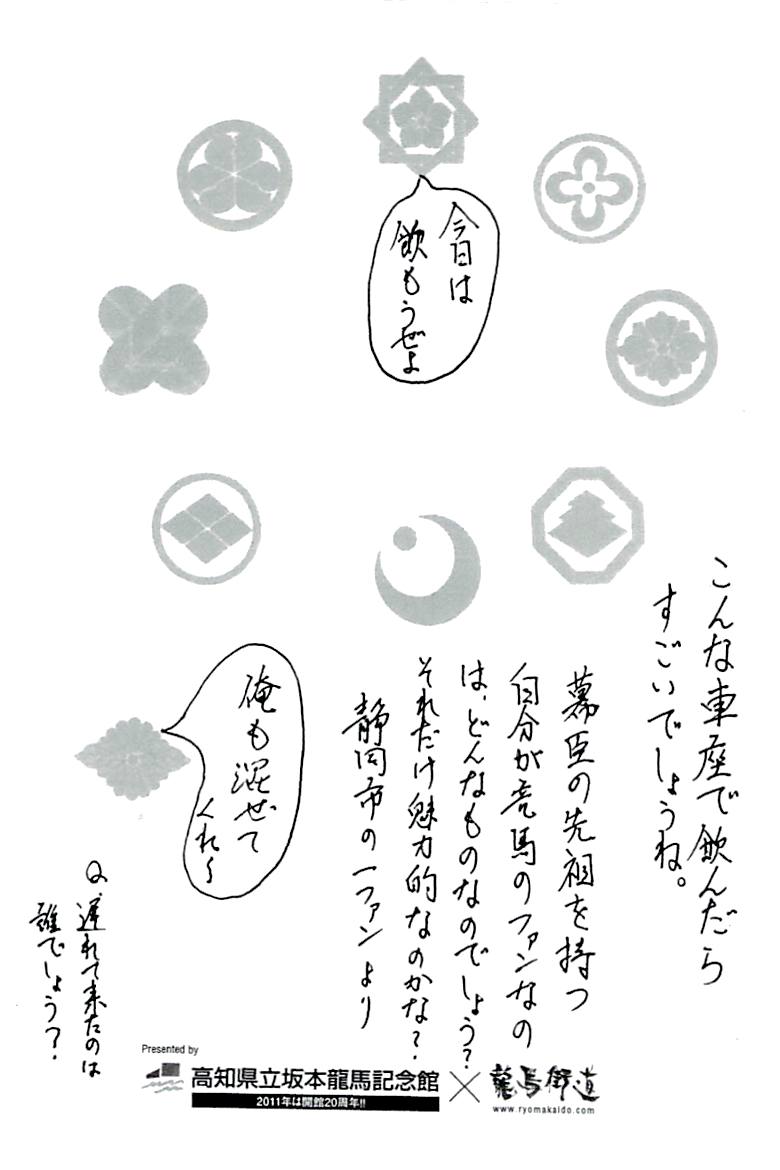 今日は
飲もうぜよ
こんな車座で飲んだら
すごいでしょうね。
幕臣の先祖を持つ
自分が竜馬のファンなの
は、どんなものなのでしょう?
それだけ魅力的なのかな?
静岡市の一ファンより
俺も混ぜて
くれ~
Q、遅れて来たのは
誰でしょう?
Presented by
高知県立坂本龍馬記念館
2011年は開館20周年!!
×
龍馬街道
www.ryomakaido.com